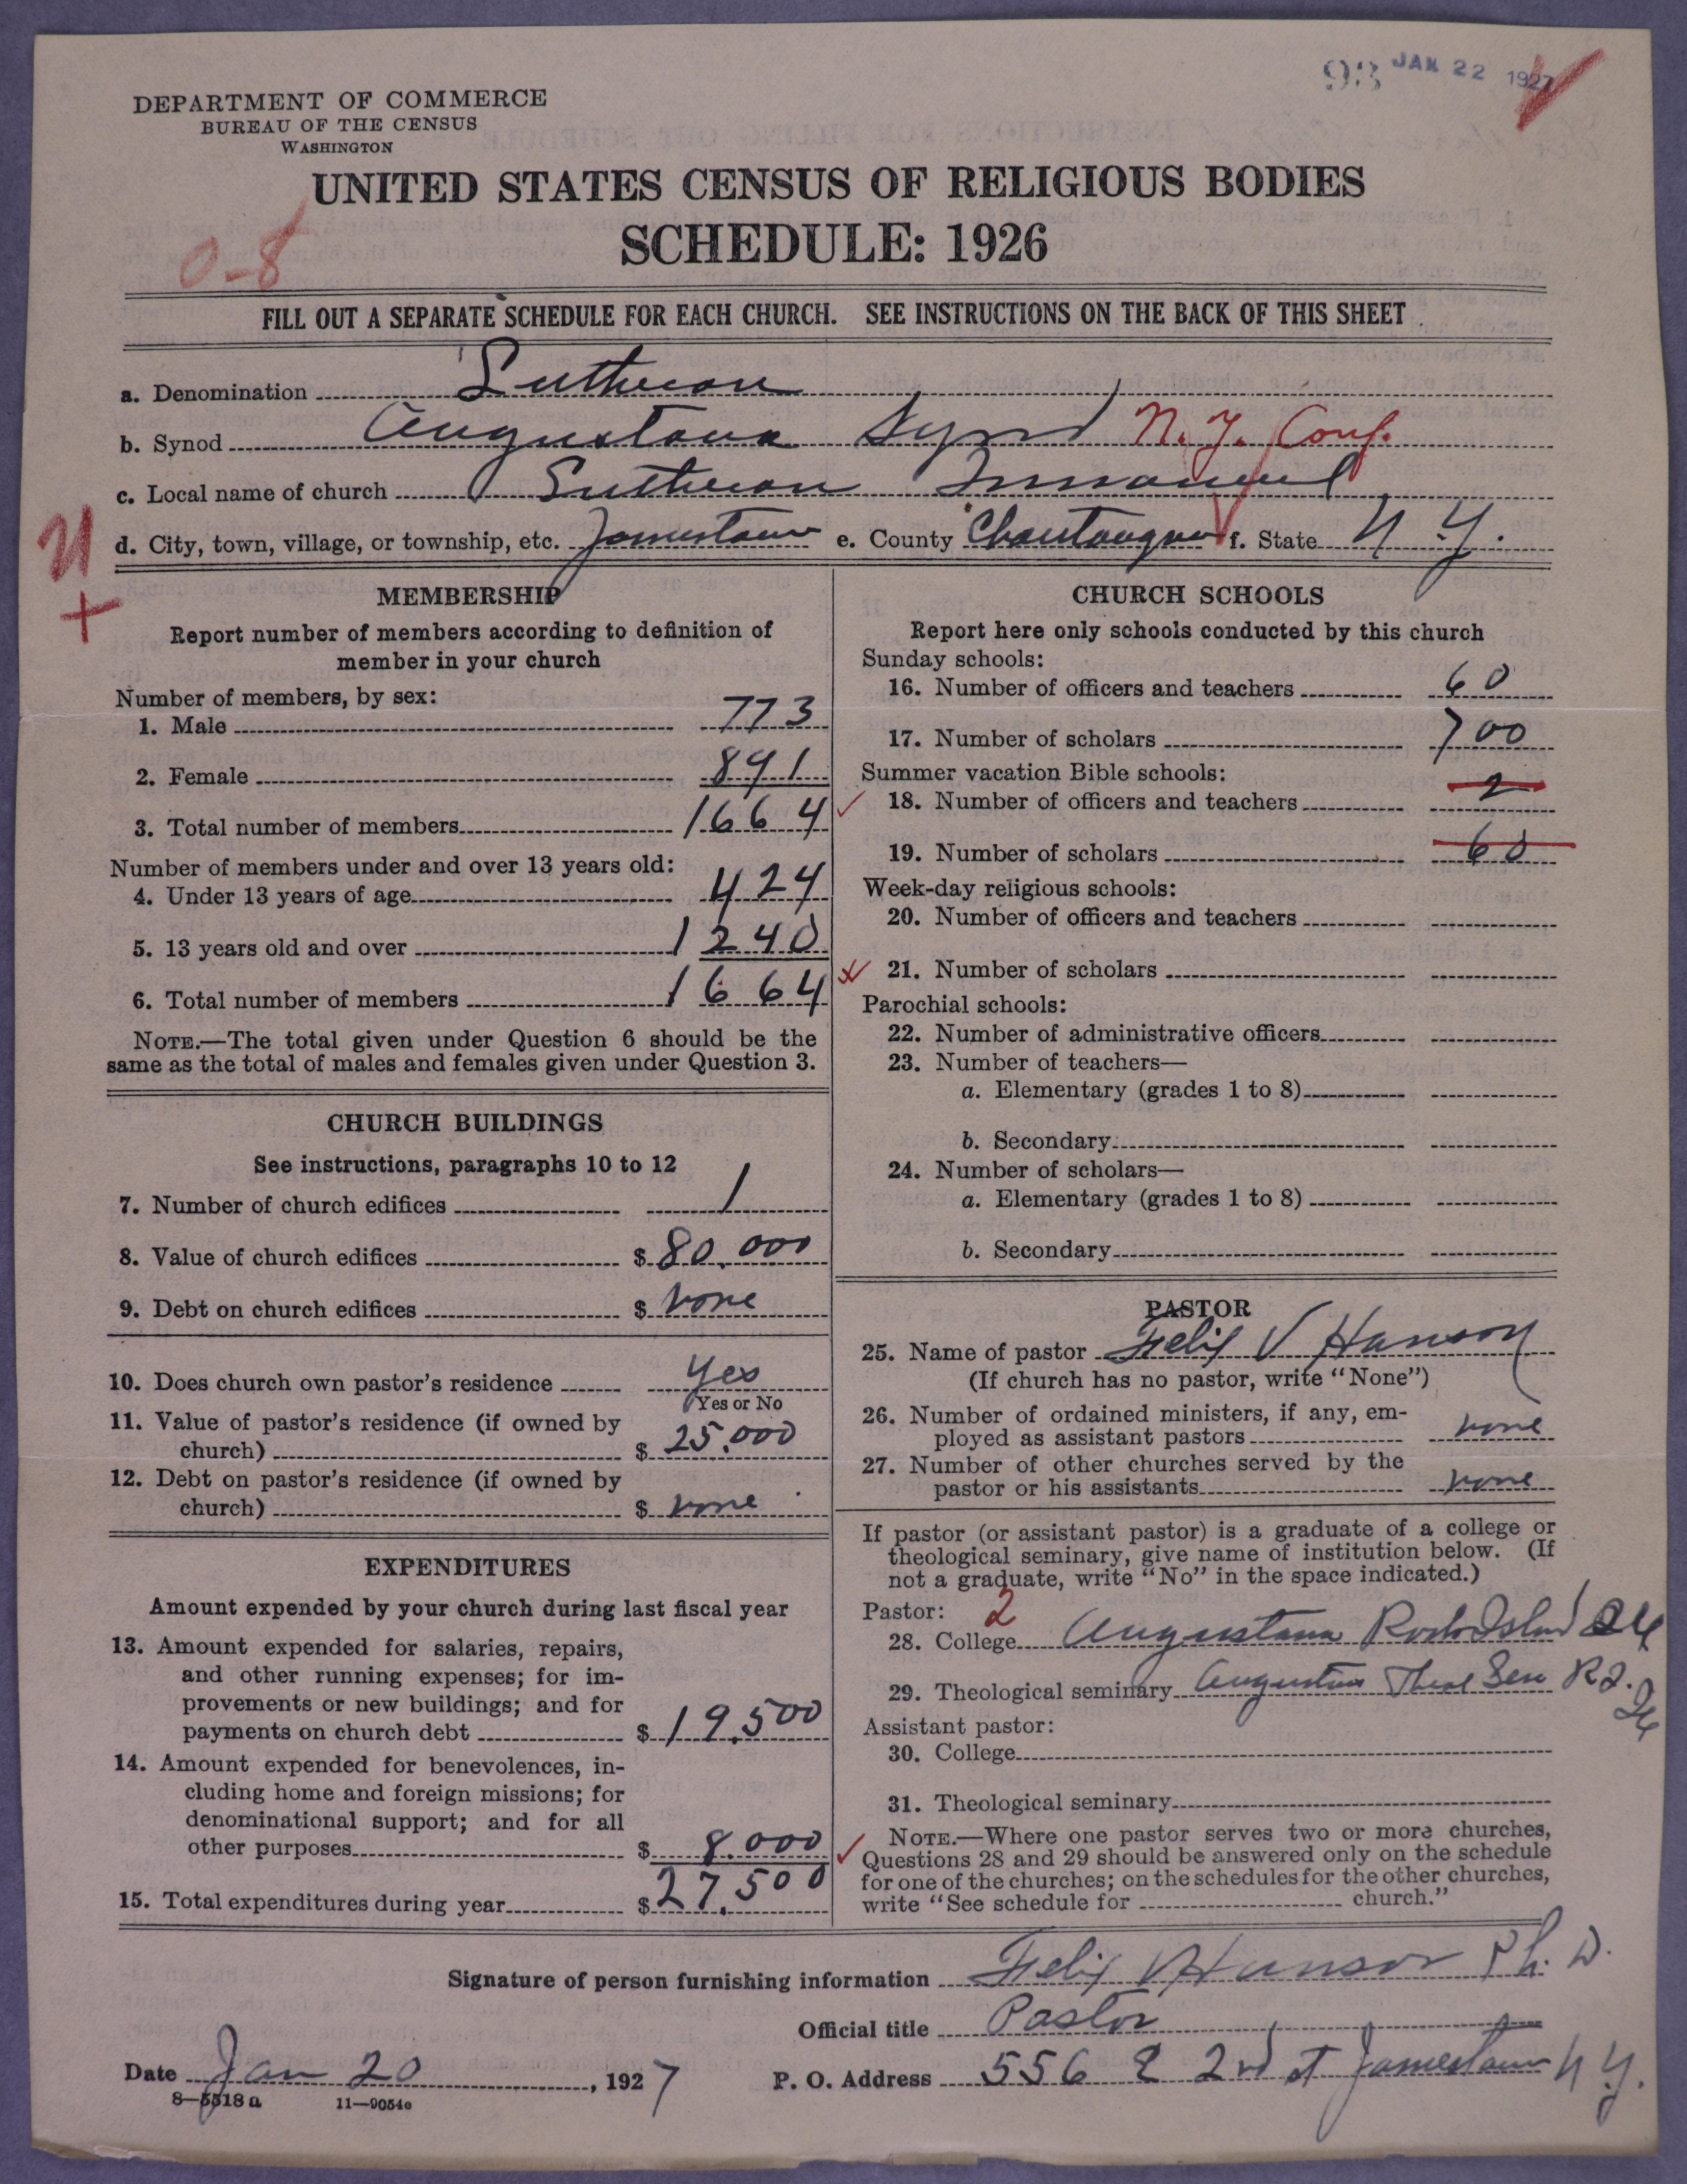 93 JAN 22 1927
DEPARTMENT OF COMMERCE
BUREAU OF THE CENSUS
WASHINGTON
UNITED STATES CENSUS OF RELIGIOUS BODIES
SCHEDULE: 1926
0-8
FILL OUT A SEPARATE SCHEDULE FOR EACH CHURCH. SEE INSTRUCTIONS ON THE BACK OF THIS SHEET
a. Denomination Lutheran
b. Synod Augustana Synod N. Y. Conf.
c. Local name of church Lutheran Immanuel
d. City, town, village, or township, etc. Jamestown e. County Chautauqua f. State N. Y.
MEMBERSHIP
Report number of members according to definition of
member in your church
Number of members, by sex:
1. Male 773
2. Female 891
3. Total number of members 1664
Number of members under and over 13 years old:
4. Under 13 years of age 424
5. 13 years old and over 1240
6. Total number of members 1664
NOTE.—The total given under Question 6 should be the
same as the total of males and females given under Question 3.
CHURCH BUILDINGS
See instructions, paragraphs 10 to 12
7. Number of church edifices 1
8. Value of church edifices $ 80,000
9. Debt on church edifices $ none
10. Does church own pastor's residence yes
Yes or No
11. Value of pastor's residence (if owned by
church) $ 25,000
12. Debt on pastor's residence (if owned by
church) $ none
EXPENDITURES
Amount expended by your church during last fiscal year
13. Amount expended for salaries, repairs,
and other running expenses; for im-
provements or new buildings; and for
payments on church debt $ 19,500
14. Amount expended for benevolences, in-
cluding home and foreign missions; for
denominational support; and for all
other purposes $ 8.000
15. Total expenditures during year $ 27,500
CHURCH SCHOOLS
Report here only schools conducted by this church
Sunday schools:
16. Number of officers and teachers 60
17. Number of scholars 700
Summer vacation Bible schools:
18. Number of officers and teachers 2
19. Number of scholars 60
Week-day religious schools:
20. Number of officers and teachers
21. Number of scholars
Parochial schools:
22. Number of administrative officers
23. Number of teachers—
a. Elementary (grades 1 to 8)
b. Secondary
24. Number of scholars—
a. Elementary (grades 1 to 8)
b. Secondary
PASTOR
25. Name of pastor Felix V Hanson
(If church has no pastor, write "None")
26. Number of ordained ministers, if any, em-
ployed as assistant pastors none
27. Number of other churches served by the
pastor or his assistants none
If pastor (or assistant pastor) is a graduate of a college or
theological seminary, give name of institution below. (If
not a graduate, write "No" in the space indicated.)
Pastor: 2
28. College Augustana Rock Island Ill
29. Theological seminary Augustana Theol Sem R I. Ill
Assistant pastor:
30. College
31. Theological seminary
NOTE.—Where one pastor serves two or more churches,
Questions 28 and 29 should be answered only on the schedule
for one of the churches; on the schedules for the other churches,
write "See schedule for church."
Signature of person furnishing information Felix V Hanson Ph. D.
Official title Pastor
Date Jan 20, 1927 P. O. Address 556 E 2nd st Jamestown N Y.
8-5518 a 11-9054c